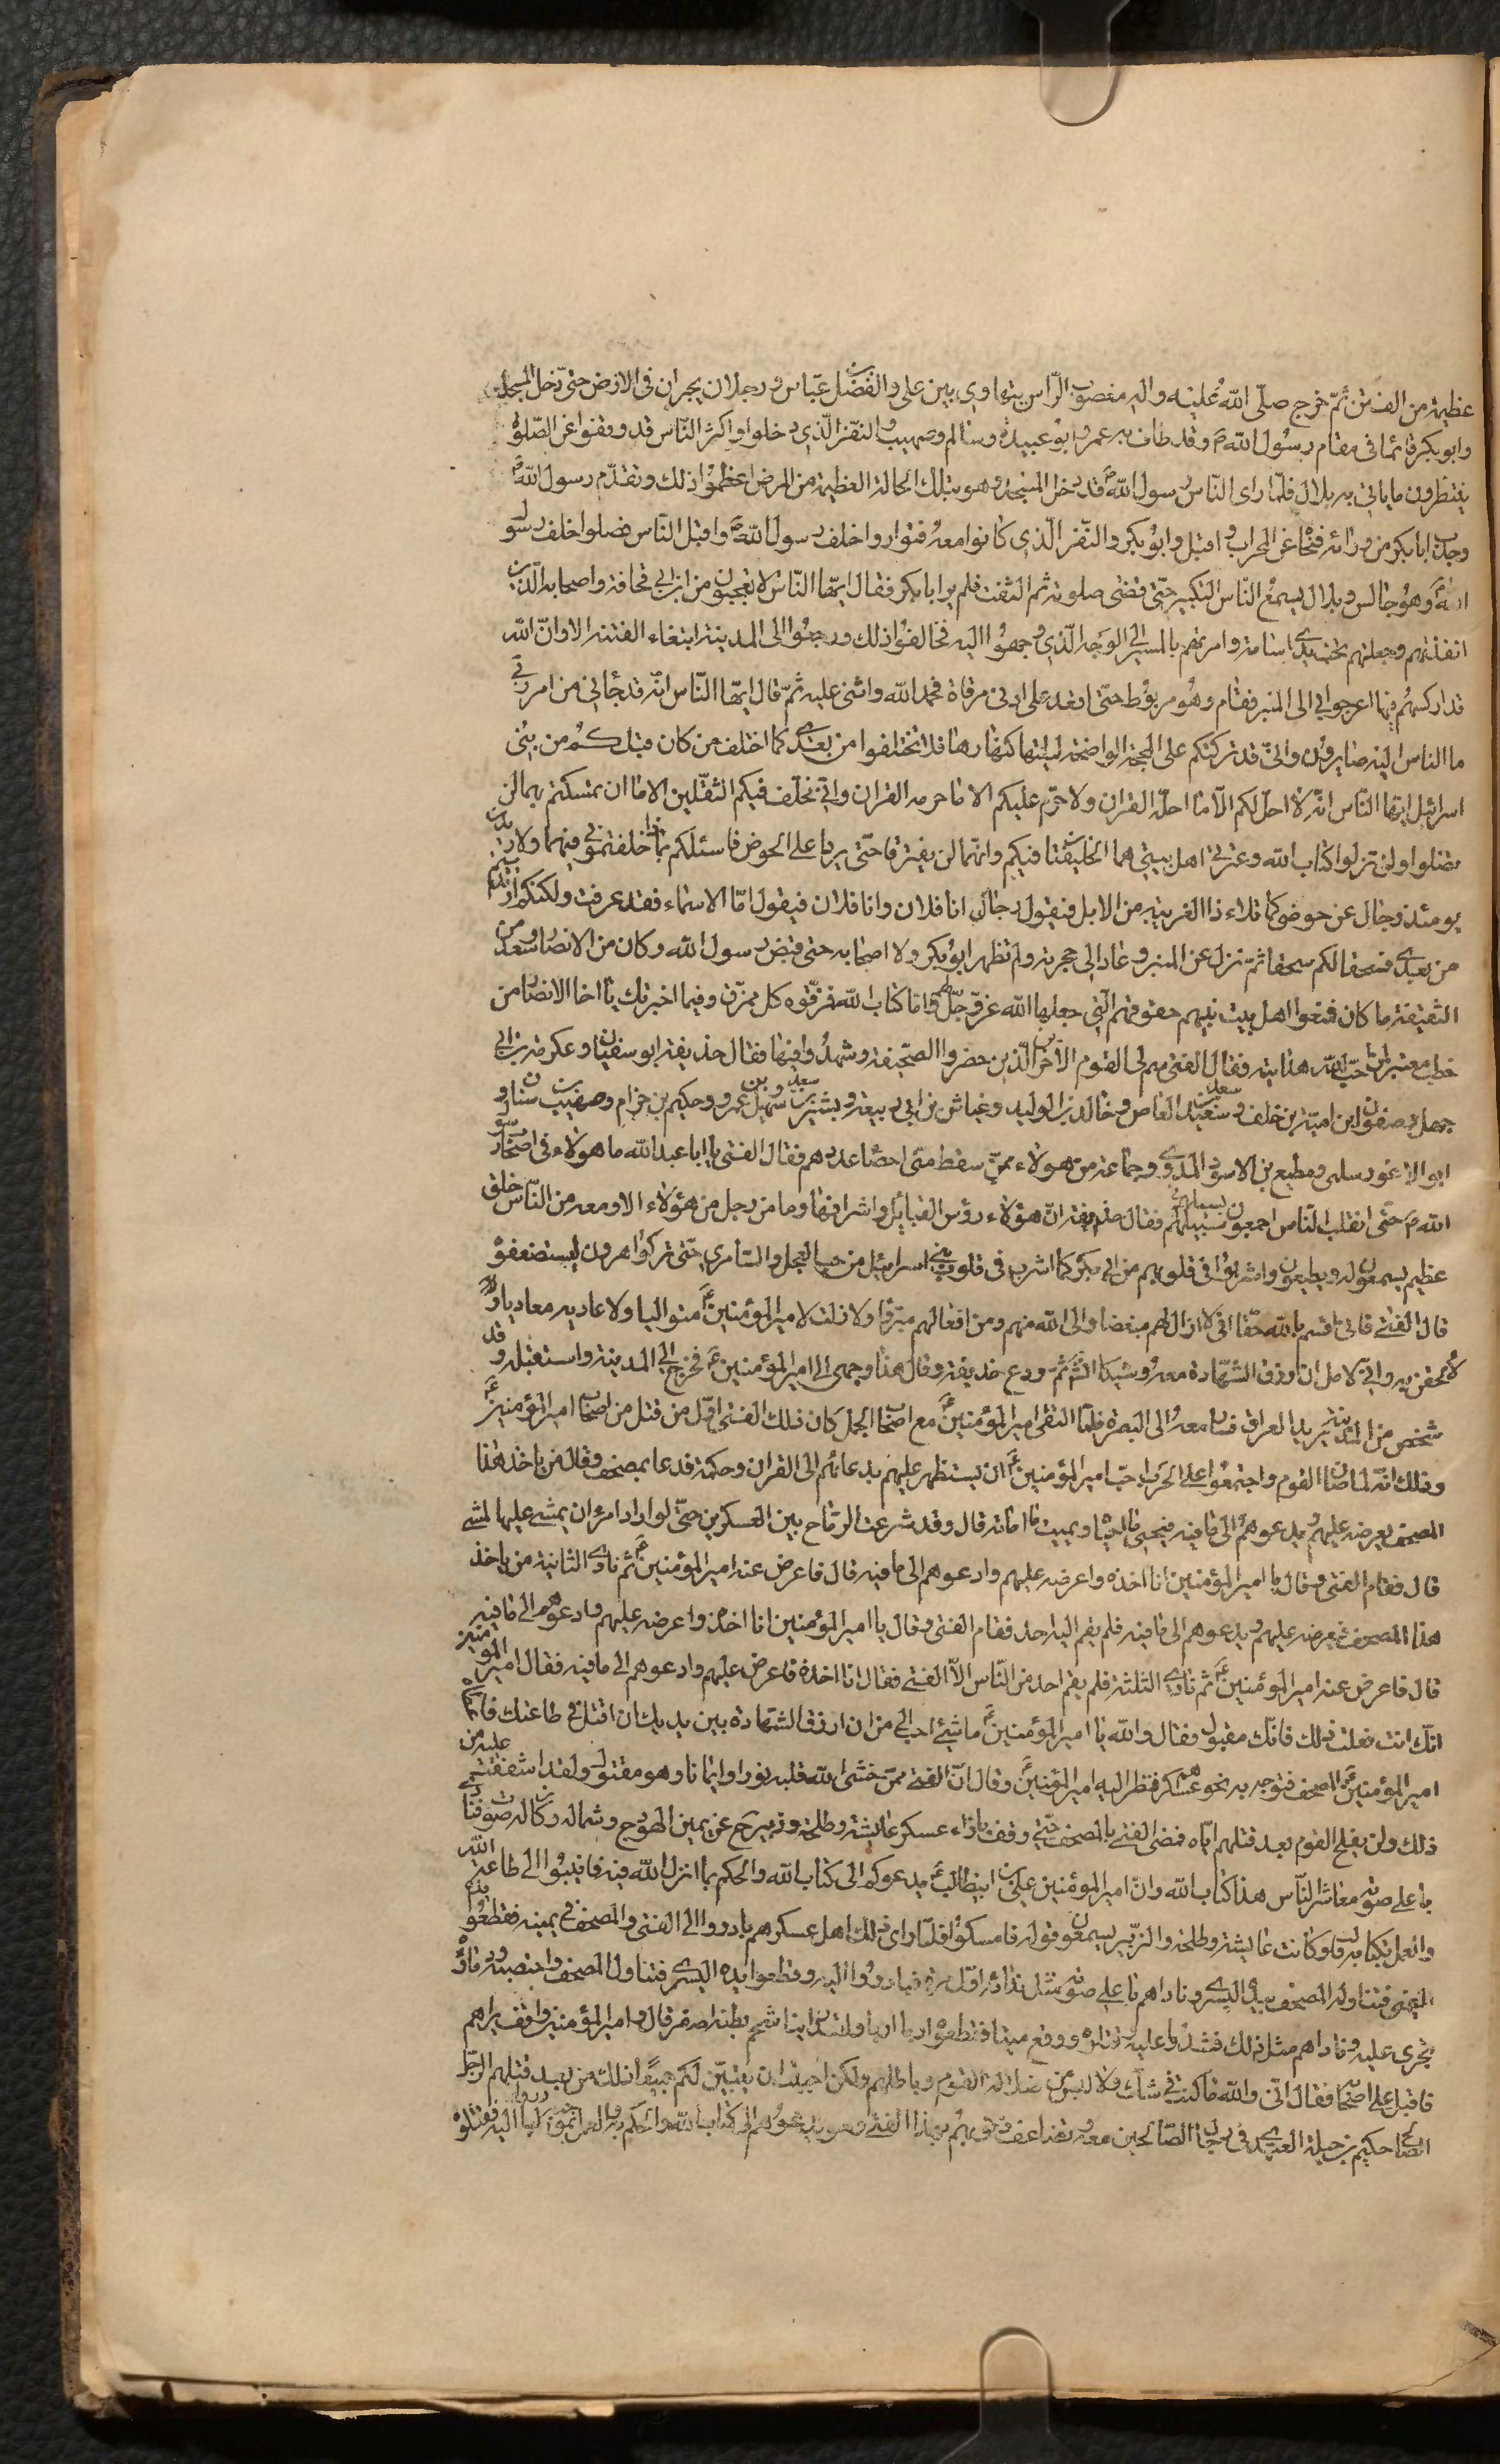 عظيمة من الفتن ثمّ خرج صلّى الله عليه واله معصوب الرّاس يتهاوى بين على والفضل بن عبّاس ورجلان يجران فى الارض حتى دخل المسجد
وابوبكر قائما فى مقام رسول الله ص وقد طاف به عمر وابو عبيدة وسالم وصهيب والنفر الّذى دخلوا واكثر النّاس قد وقفوا عن الصّلوة
ينتظرون ما ياتى به بلال فلمّا راى النّاس رسول الله ص قد دخل المسجد وهو بتلك الحالة العظيمة من المرض اعظموا ذلك وتقدّم رسول الله ص
وجذب ابابكر من ورائه فنحّاه عن المحراب واقبل وابوبكر والنّفر الّذى كانوا معه فتواروا خلف رسول الله ص واقبل النّاس فصلوا خلف رسول
الله ص وهو جالس وبلال يسمع النّاس التكبير حتّى قضى صلوته ثم التفت فلم ير ابابكر فقال ايّها النّاس لا تعجبون من ابن ابى قحافة واصحابه الّذين
انفذتهم وجعلتهم تحت يدى اسامة وامرتهم بالمسير الى الوجه الّذى وجهوا اليه فخالفوا ذلك ورجعوا الى المدينة ابتغاء الفتنة الا وانّ الله
قد اركسهم فيها اعرجوا بى الى المنبر فقام وهو مربوط حتّى اقعد على ادنى مرقاة فحمد الله واثنى عليه ثمّ قال ايّها النّاس انّه قد جائنى من امر ربّى
ما الناس اليه صايرون وانّى قد تركتكم على المحجة الواضحة ليلتها كنهارها فلا تختلفوا من بعدى كما اختلف من كان قبلكم من بنى
اسرائيل ايّها النّاس انّه لا احل لكم الّا ما احلّه القران ولا حرّم عليكم الا ما حرمه القران وانّى مخلّف فيكم الثقلين الا ما ان تمسكتم بهما لن
تضلوا ولن تزلوا كتاب الله وعترتى اهل بيتى هما الخليفتان فيكم وانّهما لن يفترقا حتّى يردا على الحوض فاسئلكم بماذا خلفتمونى فيهما وليذادن
يومئذ رجال عن حوضى كما تذاد الغريبة من الابل فيقول رجال انا فلان وانا فلان فيقول امّا الاسماء فقد عرفت ولكنكم ارتددتم
من بعدى فسحقا لكم سحقا ثمّ نزل عن المنبر وعاد الى حجرته ولم يظهر ابوبكر ولا اصحابه حتى قبض رسول الله وكان من الانصار وسعد من
السقيفة ما كان فمنعوا اهل بيت نبيهم حقوقهم الّتى جعلها الله عزّ وجلّ لهم وامّا كتاب الله فمزّقوه كل ممزّق وفيما اخبرتك يا اخا الانصار من
خطب معتبر لمن احبّ الله هدايته فقال الفتى سم لى القوم الاخرين الّذين حضروا الصّحيفة وشهدوا فيها فقال حذيفة ابوسفيان وعكرمة بن ابى
جهل وصفوان ابن امية بن خلف وسعيد بن العاص وخالد بن الوليد وعياش بن ابى ربيعة وبشير بن سعد وسهيل بن عمرو وحكيم بن حزام وصهيب بن سنان و
ابو الاعور سلمى ومطيع بن الاسود المدرى وجماعة من هولاء ممن سقط منّى احصاء عددهم فقال الفتى يا ابا عبد الله ما هولاء فى اصحاب رسول
الله ص حتّى انقلب النّاس اجمعون بسبيلهم فقال حذيفة انّ هؤلاء رؤس القبائل واشرافها وما من رجل من هؤلاء الا ومعه من النّاس خلق
عظيم يسمعون له ويطيعون واشربوا فى قلوبهم من ابى بكر كما اشرب فى قلوب بنى اسرائيل من حب العجل والسّامرى حتّى تركوا هرون ليستضعفوه
قال الفتى فانّى اقسم بالله حقّا انّى لا ازال لهم مبغضا والى الله منهم ومن افعالهم متبرئا ولا زلت لامير المؤمنين ع متواليا ولاعاديه معاديا و
لالحقن به وانّى لامل ان ارزق الشّهادة معه وشيكا انشاء الله ثمّ ودع حذيفة وقال هذا وجهى الى امير المؤمنين ع فخرج الى المدينة واستقبله وقد
شخص من المدينة يريد العراق فسار معه الى البصرة فلمّا التقى امير المؤمنين ع مع اصحاب الجمل كان ذلك الفتى اوّل من قتل من اصحاب امير المؤمنين ع
وذلك انّه لما صاف القوم واجتمعوا على الحرب احبّ امير المؤمنين ع ان يستظهر عليهم بدعائهم الى القران وحكمه فدعا بمصحف وقال من ياخذ هذا
المصحف يعرضه عليهم ويدعوهم الى ما فيه فيحيى ما احياه ويميت ما اماته قال وقد شرعت الرماح بين العسكرين حتّى لو اراد امرء ان يمشى عليها لمشى
قال فقام الفتى وقال يا امير المؤمنين انا اخذه واعرضه عليهم وادعوهم الى ما فيه قال فاعرض عنه امير المؤمنين ع ثم نادى الثانية من ياخذ
هذا المصحف يعرضه عليهم ويدعوهم الى ما فيه فلم يقم اليه احد فقام الفتى وقال يا امير المؤمنين انا اخذه واعرضه عليهم وادعوهم الى ما فيه
قال فاعرض عنه امير المؤمنين ع ثم نادى الثلثة فلم يقم احد من النّاس الّا الفتى فقال انا اخذه فاعرض عليهم وادعوهم الى ما فيه فقال امير المؤمنين
انّك انت فعلت ذلك فانّك مقتول فقال والله يا امير المؤمنين ع ما شئ احب الى من ان ارزق الشهادة بين يديك وان اقتل فى طاعتك فاعطاه
امير المؤمنين ع المصحف فتوجه به نحو عسكرهم فنظر اليه امير المؤمنين ع وقال انّ الفتى ممن حشى الله قلبه نورا وايمانا وهو مقتول ولقد اشفقت عليه من
ذلك ولن يفلح القوم بعد قتلهم ايّاه فمضى الفتى بالمصحف حتّى وقف بازاء عسكر عايشة وطلحة وزبير ح عن يمين الهودج وشماله وكان له صوت فنادى
باعلى صوته معاشر النّاس هذا كتاب الله وانّ امير المؤمنين على بن ابيطالب ع يدعوكم الى كتاب الله والحكم بما انزل الله فيه فانيبوا الى طاعة الله
والعمل بكتابه قال وكانت عايشة وطلحة والزبير يسمعون قوله فامسكوا فلمّا راى ذلك اهل عسكرهم بادروا الى الفتى والمصحف فى يمينه فقطعوا يده
اليمنى فتناول المصحف بيده اليسرى وناداهم باعلى صوته مثل ندائه اوّل مرة فبادروا اليه وقطعوا يده اليسرى فتناول المصحف واحتضنه ودماؤه
تجرى عليه وناداهم مثل ذلك فشدّوا عليه فقتلوه ووقع ميتا فقطعوه اربا اربا ولقد راينا شحم بطنه اصفر قال وامير المؤمنين واقف يراهم
فاقبل على اصحابه فقال انّى والله ما كنت فى شك ولا لبس من ضلالة القوم وباطلهم ولكن احببت ان يتبيّن لكم جميعًا ذلك من بعد قتلهم الرّجل
الصالح حكيم بن جبلة العبدى فى رجال الصّالحين معه وتضاعف ذنوبهم بهذا الفتى وهو يدعوهم الى كتاب الله والحكم به والعمل بموجبه فثاروا اليه فقتلوه